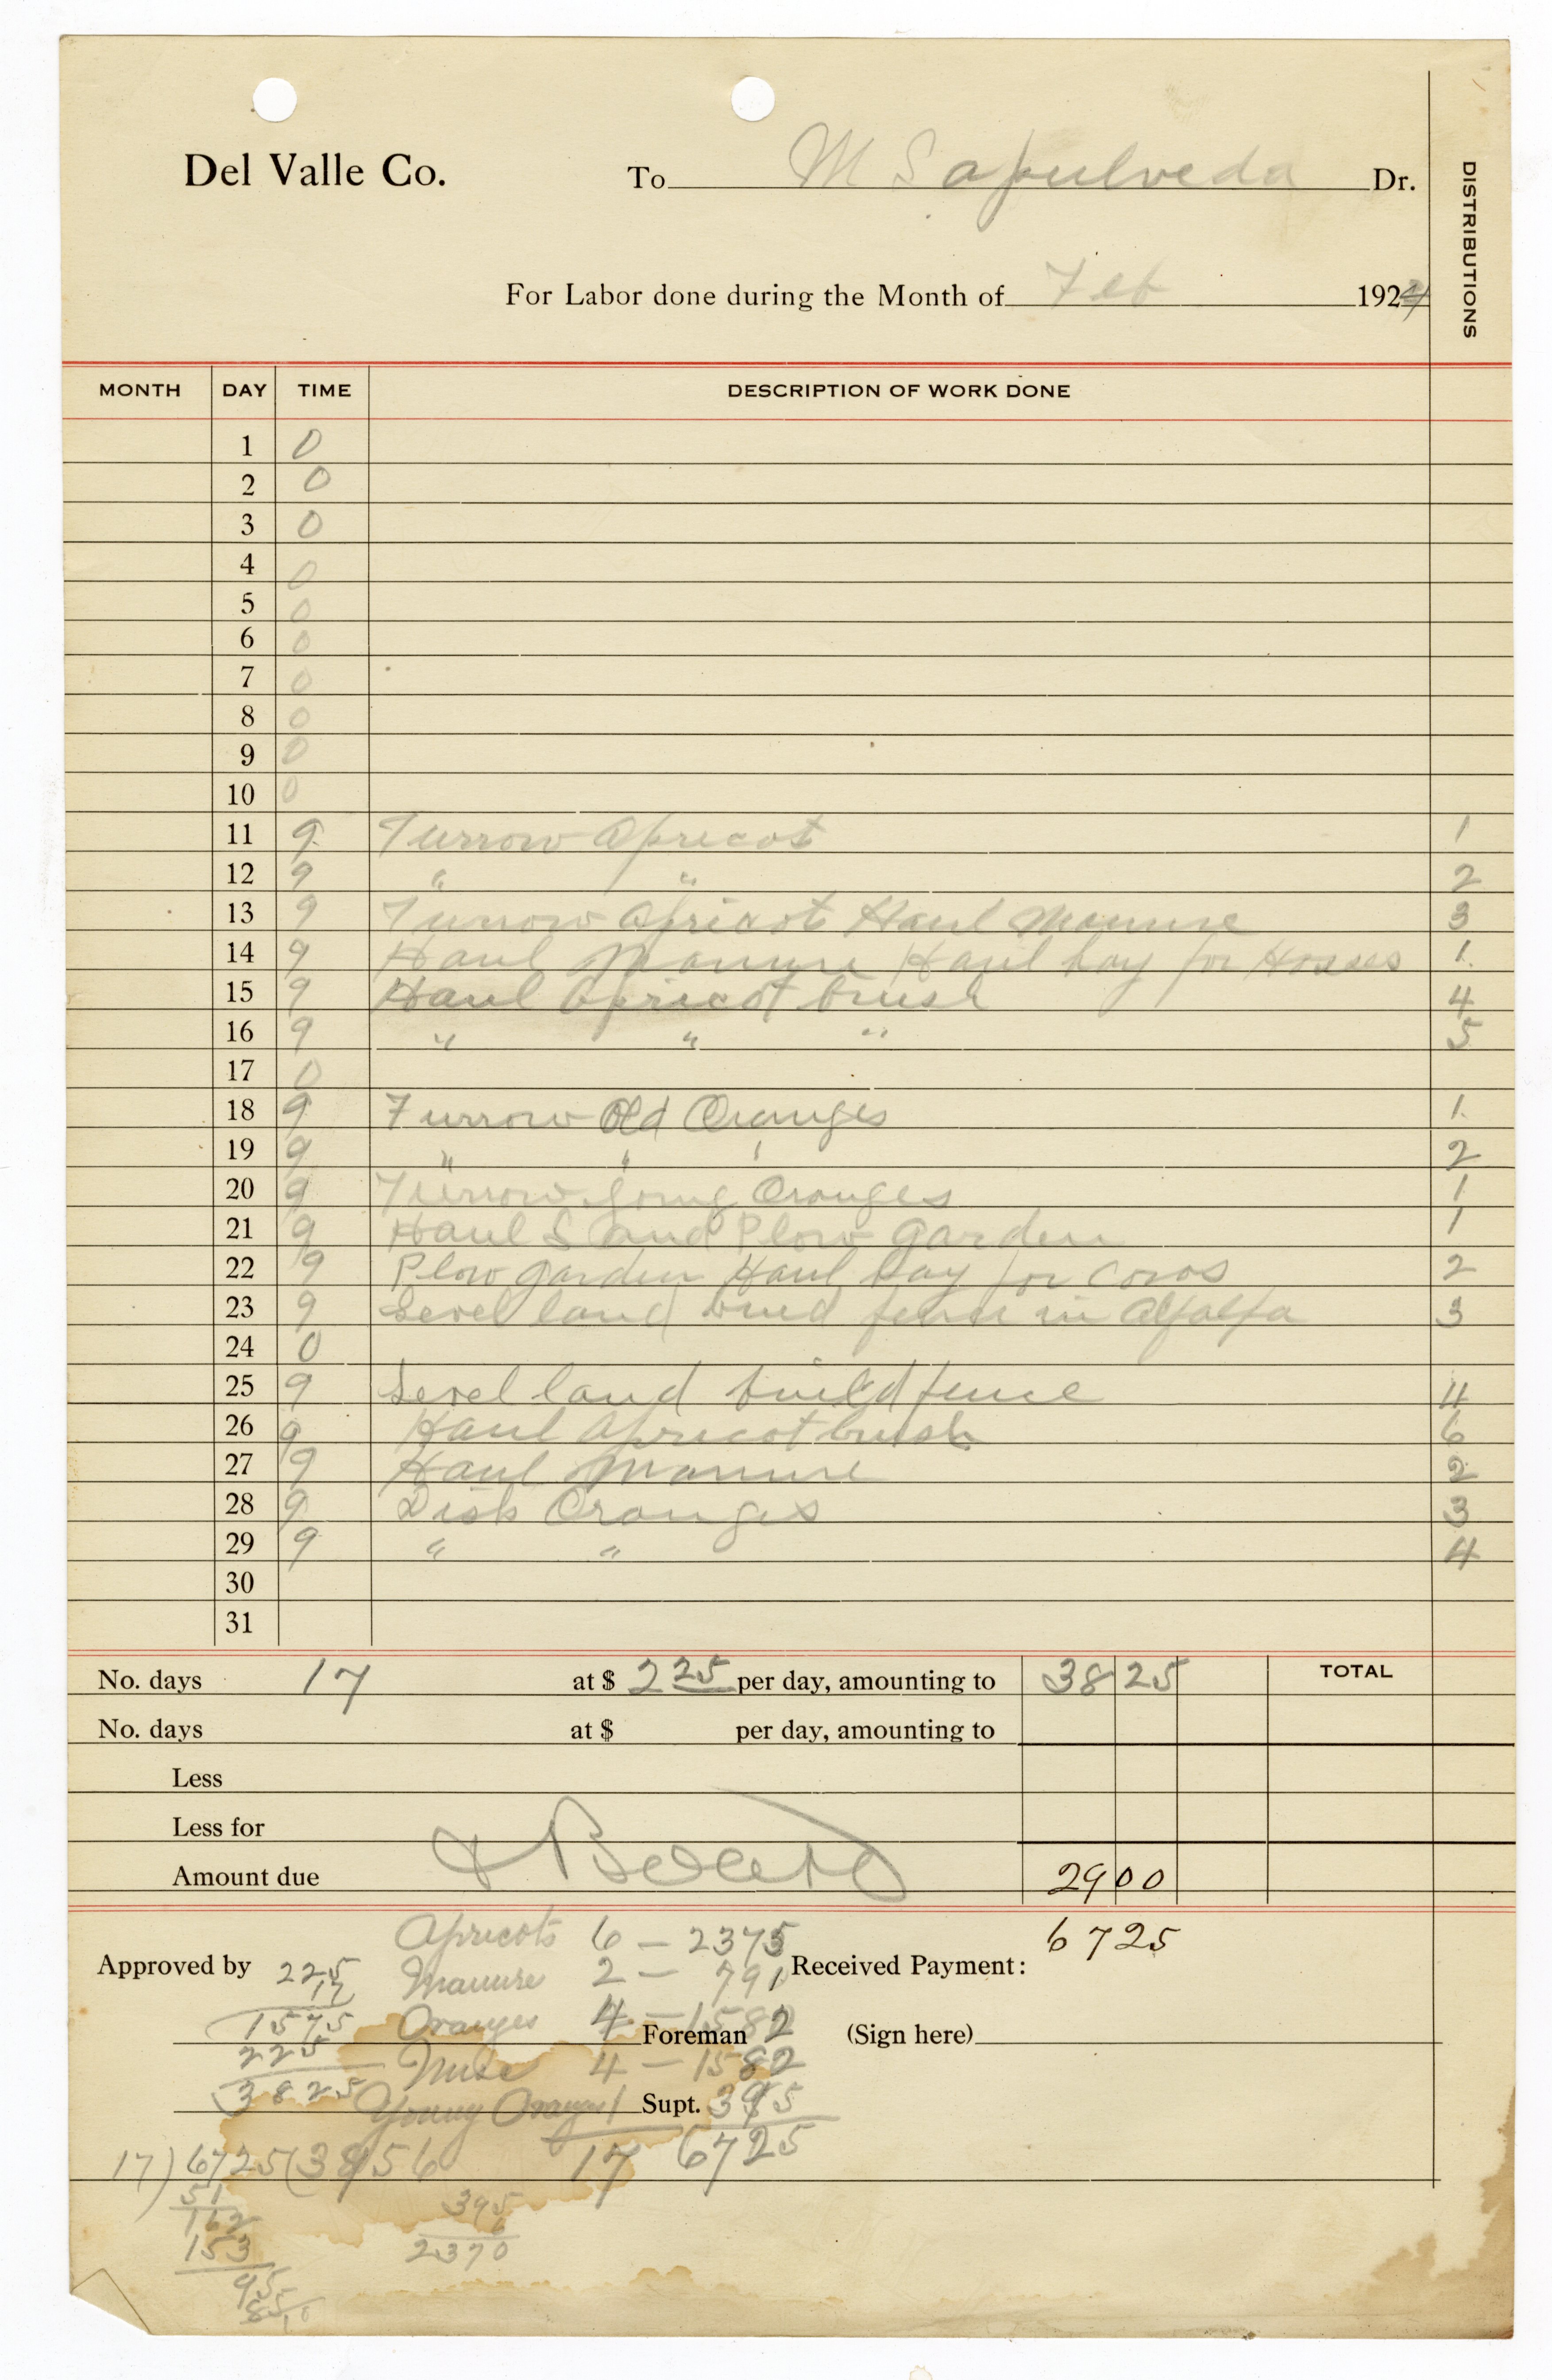 Del Valle Co. To M Sapulveda Dr.
DISTRIBUTIONS
For Labor done during the Month of Feb 1924
MONTH DAY TIME DESCRIPTION OF WORK DONE
1 0
2 0
3 0
4 0
5 0
6 0
7 0
8 0
9 0
10 0
11 9 Furrow Apricot 1
12 9 " " 2
13 9 Furrow Apricot Haul Manure 3
14 9 Haul Manure Haul hay for Hosses 1
15 9 Haul Apricot brush 4
16 9 " " " 5
17 0
18 9 Furrow Old Oranges 1
19 9 " " " 2
20 9 Furrow Yong Oranges 1
21 9 Haul Sand Plow Garden 1
22 9 Plow garden Haul hay for Cows 2
23 9 Level land fence in Alfalfa 3
24 0
25 9 Level land build fence 4
26 9 Haul Apricot brush 6
27 9 Haul Manure 2
28 9 Disk Oranges 3
29 9 " " 4
30
31
No. days 17 at $ 2 25 per day, amounting to 38 25 TOTAL
No. days at $ per day, amounting to
Less
Less for
Amount due + Board 29 00
67 25
Approved by Received Payment:
Apricots 6 — 2375
Manure 2 — 791
Oranges 4 — 1582
Foreman (Sign here)
Misc 4 — 1582
Young Oranges 1 395
Supt.
17 6725
225
17
1575
225
3825
17)6725(3956
51
162
153
95
85
395
6
2370